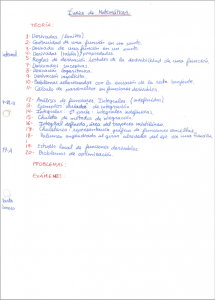 Índice de Matemáticas
TEORÍA:
1- Derivadas (límites)
2- Continuidad de una función en un punto.
3- Derivada de una función en un punto.
4- Derivadas (tabla) propiedades.
5- Reglas de derivación. Estudio de la derivabilidad de una función
6- Derivadas sucesivas
7- Derivación logarítmica.
8- Derivación implícita.
9- Problemas relacionados con la ecuación de la recta tangente.
10- Cálculo de parámetros en funciones derivables.
12- Análisis de funciones Integrales (indefinidas)
13- inmediatas de integración.
14- Integrales: 2ª parte: integrales indefinidas.
15- Cálculo de métodos de integración.
16- Integral definida, área del trapecio mixtilíneo
17- representación gráfica de funciones sencillas.
18- Volumen engendrado al girar alrededor del eje ox una función
19- Estudio local de funciones derivables.
20- Problemas de optimización.
PROBLEMAS:
EXÁMENES: